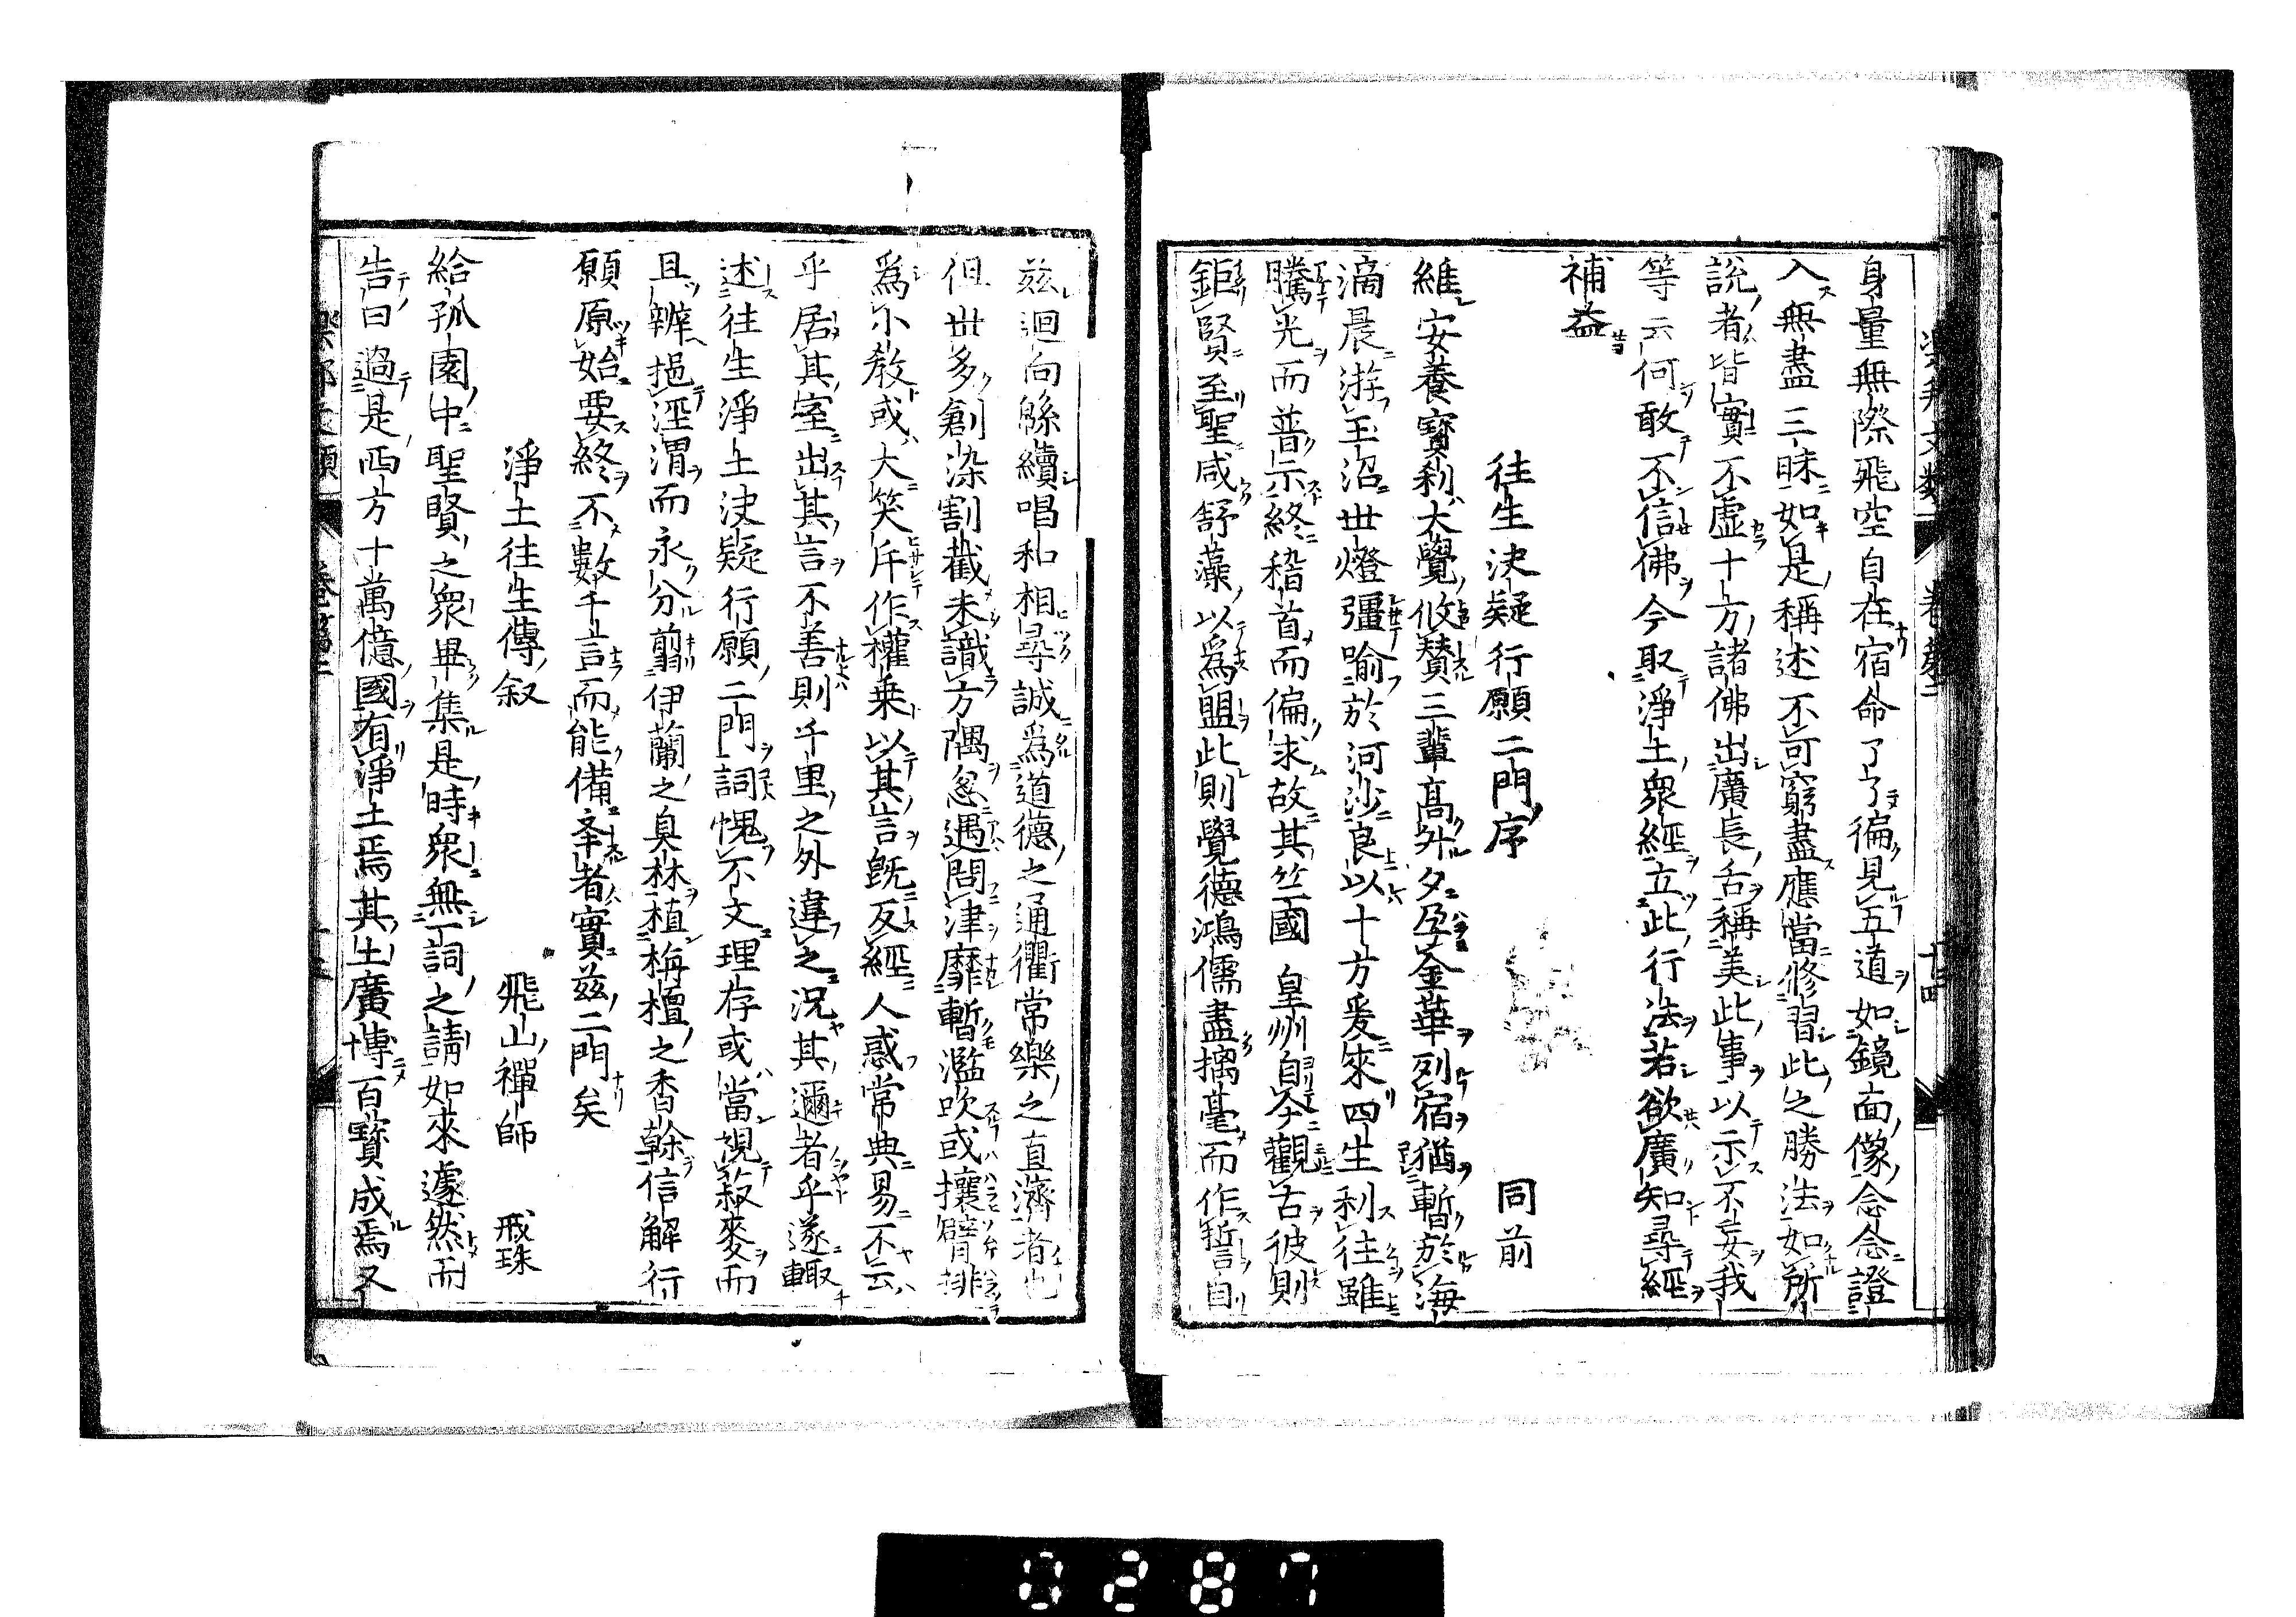 身量無際飛空自在宿命了了徧見五道如鏡面像念念證
入無盡三昧如是稱述不可窮盡應當修習此之勝法如所
說者皆實不虛十方諸佛出廣長舌稱美此事以示不妄我
等云何敢不信佛今取淨土衆經立此行法若欲廣知尋經
補益
往生决疑行願二門序 同前
維安養寶刹大覺攸賛三輩髙外夕孕金華列宿猶暫於海
滴晨游玉沼世燈彊喻於河沙良以十方爰來四生利往雖
騰光而普示終稽首而偏求故其竺國皇州自今觀古彼則
鉅賢至聖咸舒藻以爲盟此則覺德鴻儒盡摛毫而作誓自
兹迴向緜續唱和相尋誠爲道德之通衢常樂之直濟者也
但世多創染割截未識方隅忽遇問津靡暫濫吹或攘臂排
爲小教或大笑斥作權乗以其言旣反經人惑常典易不云
乎居其室出其言不善則千里之外違之況其邇者乎遂輙
述往生淨土决疑行願二門詞愧不文理存或當視菽麥而
且辨挹涇渭而永分翦伊蘭之臭林植栴檀之香榦信解行
願原始要終不數千言而能備舉者實兹二門矣
淨土往生傳叙 飛山禪師 戒珠
給孤園中聖賢之衆畢集是時衆無一詞之請如來遽然而
告曰過是西方十萬億國有淨土焉其土廣博百寶成焉又
樂邦文類 卷第二 十四
0287